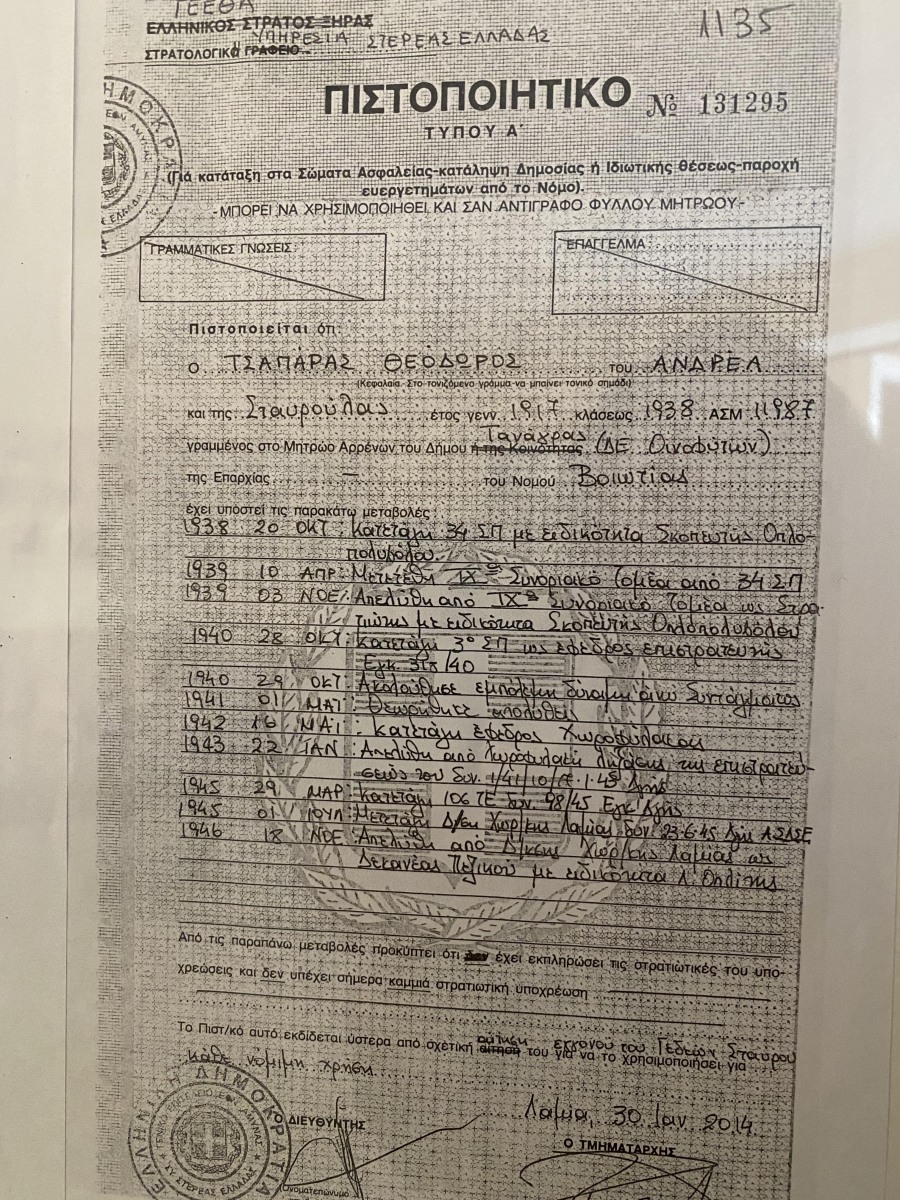 ΓΕΕΘΑ
ΕΛΛΗΝΙΚΟΣ ΣΤΡΑΤΟΣ ΞΗΡΑΣ
ΥΠΗΡΕΣΙΑ ΣΤΕΡΕΑΣ ΕΛΛΑΔΑΣ
ΣΤΡΑΤΟΛΟΓΙΚΗ ΓΡΑΦΕΙΟ
1135
ΠΙΣΤΟΠΟΙΗΤΙΚΟ № 131295
ΤΥΠΟΥ Α΄
(Γιά κατάταξη στα Σώματα Ασφαλείας-κατάληψη Δημοσίας ή Ιδιωτικής θέσεως-παροχή
ευεργετημάτων από το Νόμο).
-ΜΠΟΡΕΙ ΝΑ ΧΡΗΣΙΜΟΠΟΙΗΘΕΙ ΚΑΙ ΣΑΝ ΑΝΤΙΓΡΑΦΟ ΦΥΛΛΟΥ ΜΗΤΡΩΟΥ-
ΓΡΑΜΜΑΤΙΚΕΣ ΓΝΩΣΕΙΣ: ΕΠΑΓΓΕΛΜΑ:
Πιστοποιείται ότι:
Ο ΤΣΑΠΑΡΑΣ ΘΕΟΔΩΡΟΣ του ΑΝΔΡΕΑ
(Κεφαλαία. Στο τονιζόμενο γράμμα να μπαίνει τονικό σημάδι)
και της Σταυρούλας έτος γενν 1917 κλάσεως 1938 ΑΣΜ 11987
γραμμένος στο Μητρώο Αρρένων του Δήμου ή της Κοινότητας Τανάγρας (ΔΕ Οινοφύτων)
της Επαρχίας — του Νομού Βοιωτίας
έχει υποστεί τις παρακάτω μεταβολές:
1938 20 ΟΚΤ: Κατετάγη 34 ΣΠ με ειδικότητα Σκοπευτής Οπλο-
πολυβόλου.
1939 10 ΑΠΡ: Μετετέθη ΙΧο Συνοριακό Τομέα από 34 ΣΠ
1939 03 ΝΟΕ: Απελύθη από ΙΧο Συνοριακό Τομέα ως Στρα-
τιώτης με ειδικότητα Σκοπευτής Οπλοπολυβόλου
1940 28 ΟΚΤ: Κατετάγη 3ο ΣΠ ως έφεδρος επιστρατευτής
Εγκ. /40
1940 29 ΟΚΤ: Ακολούθησε εμπόλεμη δύναμη άνω Συντάγματος
1941 01 ΜΑΪ: Θεωρήθηκε απολυθείς
1942 16 ΜΑΪ: Κατετάγη έφεδρος Χωροφύλακας
1943 22 ΙΑΝ: Απελύθη από Χωροφυλακή λήξασης της επιστρατεύ-
σεώς του
1945 29 ΜΑΡ: Κατετάγη 106 ΤΕ δυν. 98/45 Εγκ. Δγής
1945 01 ΙΟΥΛ: Μετετάγη Δ/ση Χωρ/κης Λαμίας δυν. 23-6-45 Δγή ΑΣΔΣΕ
1946 18 ΝΟΕ: Απελύθη από Δ/σης Χωρ/κης Λαμίας ως
Δεκανέας Πεζικού με ειδικότητα Λ. Οπλίτης
Από τις παραπάνω μεταβολές προκύπτει ότι δεν έχει εκπληρώσει τις στρατιωτικές του υπο-
χρεώσεις και δεν υπέχει σήμερα καμμιά στρατιωτική υποχρέωση
Το Πιστ/κό αυτό εκδίδεται ύστερα από σχετική αίτηση αίτηση εγγονού του Γεδεών Σταύρου
του για να το χρησιμοποιήσει για
κάθε νόμιμη χρήση
Λαμία, 30 Ιαν 2014
Ο ΔΙΕΥΘΥΝΤΗΣ
Ο ΤΜΗΜΑΤΑΡΧΗΣ
Ονοματεπώνυμο
ΕΛΛΗΝΙΚΗ ΔΗΜΟΚΡΑΤΙΑ